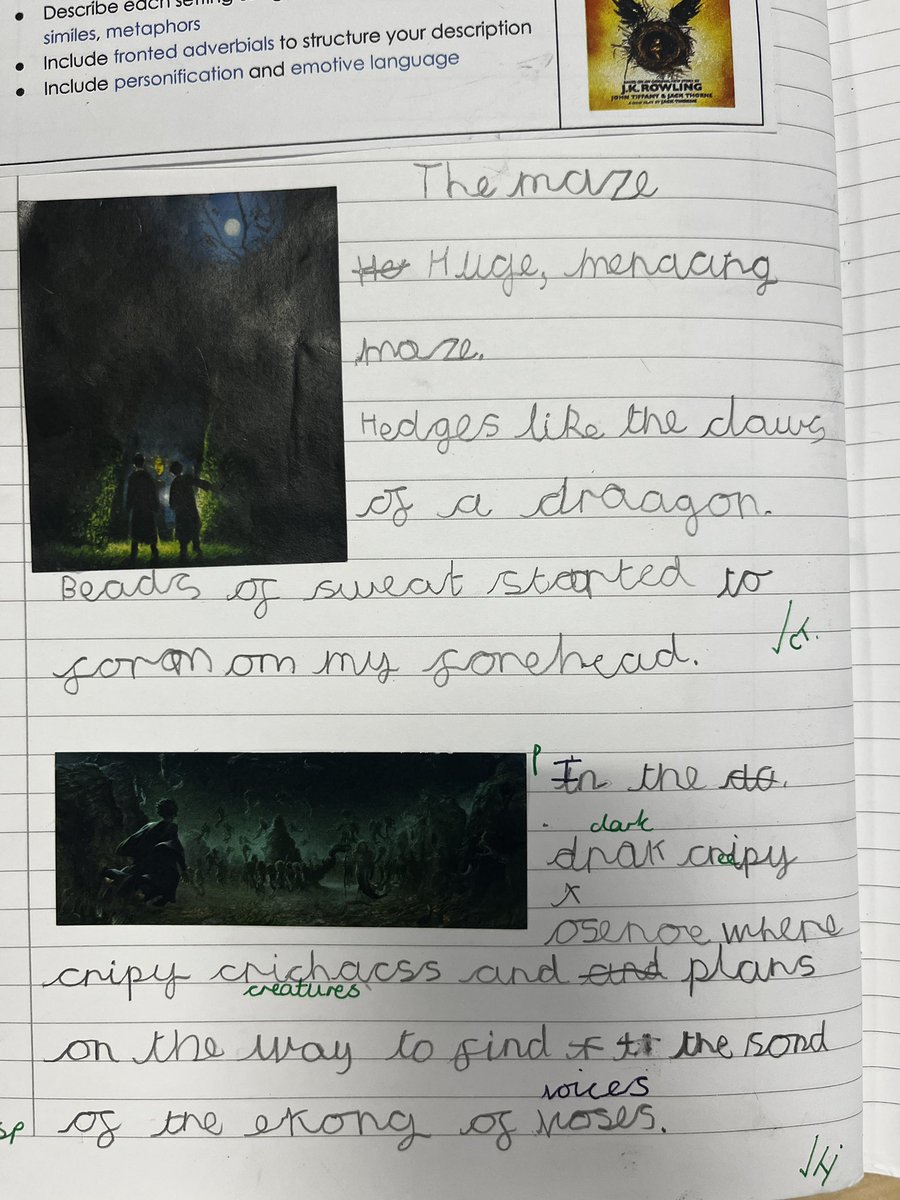 Describe each setting
similes, metaphors
Include fronted adverbials to structure your description
Include personification and emotive language
J.K. ROWLING
JOHN TIFFANY & JACK THORNE
A NEW PLAY BY JACK THORNE
The maze
Huge, menacing
maze.
Hedges like the claws
of a draagon.
Beads of sweat started to
form on my forehead.
In the
dark
drak creepy
osenoe where
cripy crichacss and and plans
creatures
on the way to find the sond
voices
of the ekong of voses.
sp